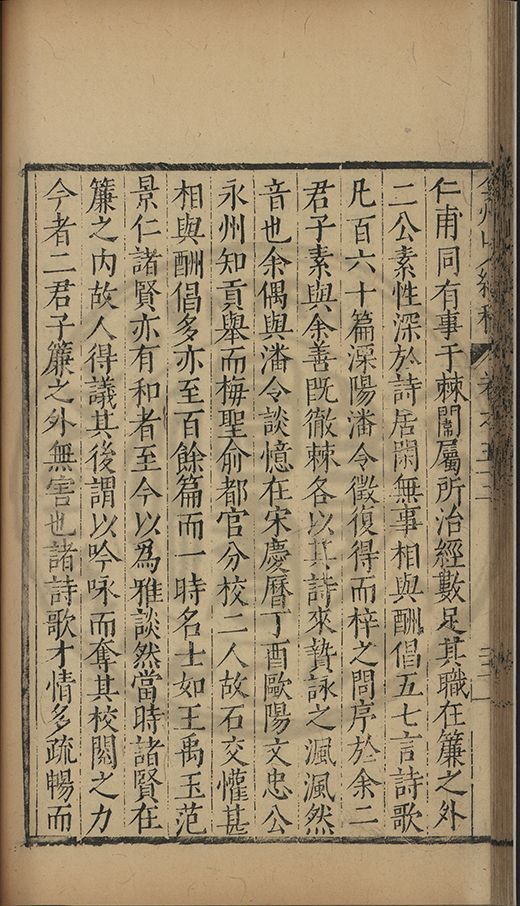 仁甫同有事于棘闈屬所治經數足其職在簾之外
二公素性深於詩居閑無事相與酬倡五七言詩歌
凡百六十篇溧陽潘令徵復得而梓之問序於余二
君子素與余善既徹棘各以其詩來贄詠之渢渢然
音也余偶與潘令談憶在宋慶曆丁酉歐陽文忠公
永州知貢舉而梅聖俞都官分校二人故石交懽甚
相與酬倡多亦至百餘篇而一時名士如王禹玉范
景仁諸賢亦有和者至今以為雅談然當時諸賢在
簾之內故人得議其後謂以吟咏而奪其校閱之力
今者二君子簾之外無害也諸詩歌才情多疏暢而